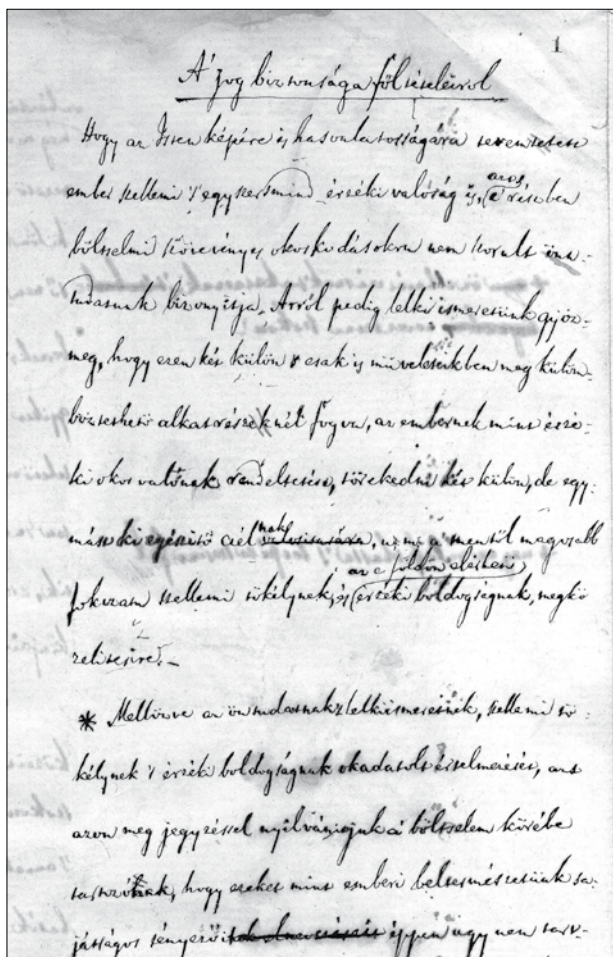 1
A' jog biztonsága föltételeiről
Hogy az Isten képére és hasonlatosságára teremtetett
ember szellemi 's egyszersmind érzéki valóság is, azt e részben
bölcselmi tekervényes okoskodásokra nem szorult önn-
tudatunk bizonyítja. Arról pedig lelki ismeretünk győz
meg, hogy ezen két külön 's csak is műveleteikben meg külön-
böztethető alkatrészeknél fogva, az embernek mint érzé-
ki okos valónak rendeltetése, törekedni két külön, de egy-
mást ki egészítő cél nak, u. m. a' mentől magasabb
az e' földön elérhető
fokozatu szellemi tökélynek, és érzéki boldogságnak, megkö
zelitésire. –
* Mellőzve az öntudatnak 's lelkiismeretnek, szellemi tö-
kélynek 's érzéki boldogságnak okadatolt értelmezését, azt
azon meg jegyzéssel nyilvánítjuk a' bölcselem körébe
tartozónak, hogy ezeket mint emberi beltermészetünk sa-
játságos tényezőit éppen ugy nem tart-